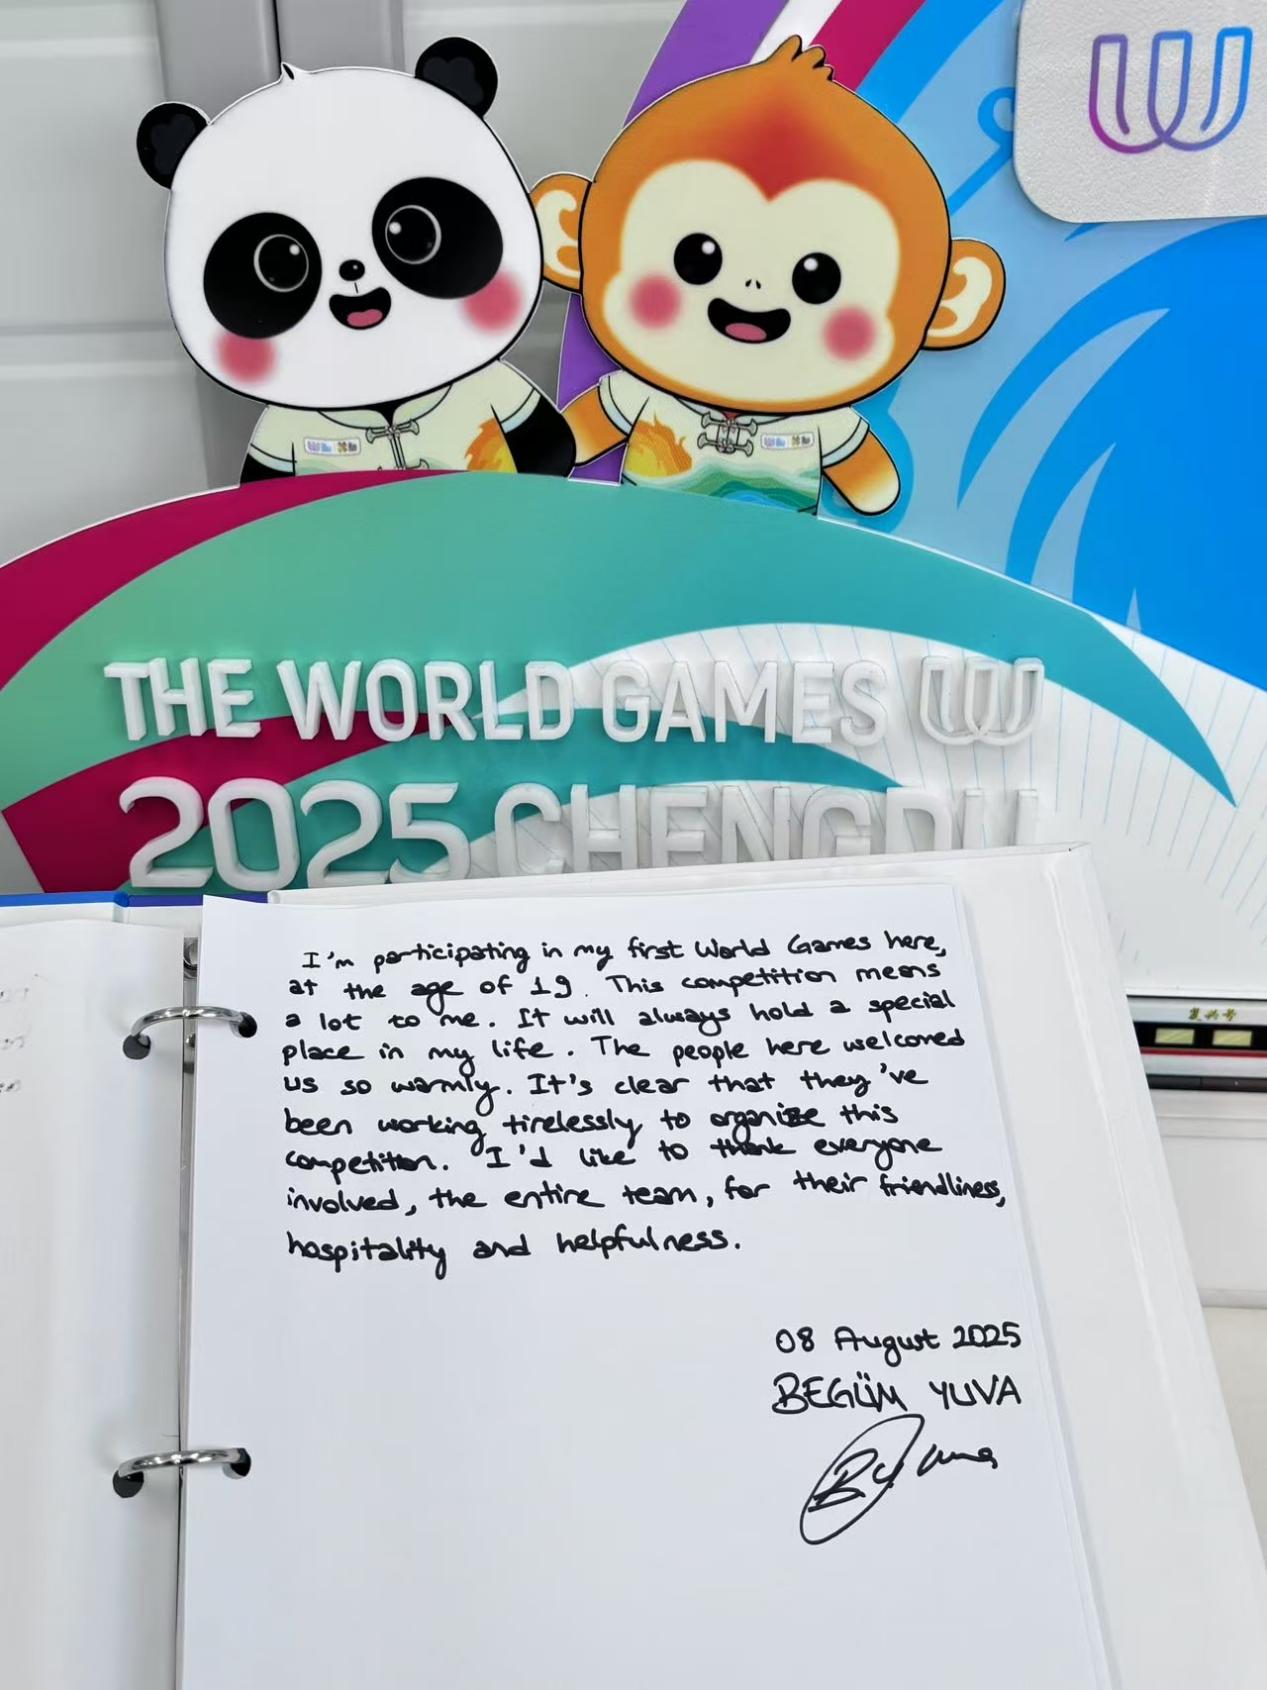 THE WORLD GAMES
2025 CHENGDU
复兴号
I'm participating in my first World Games here,
at the age of 19. This competition means
a lot to me. It will always hold a special
place in my life. The people here welcomed
us so warmly. It's clear that they've
been working tirelessly to organize this
competition. I'd like to thank everyone
involved, the entire team, for their friendliness,
hospitality and helpfulness.
08 August 2025
BEGÜM YUVA